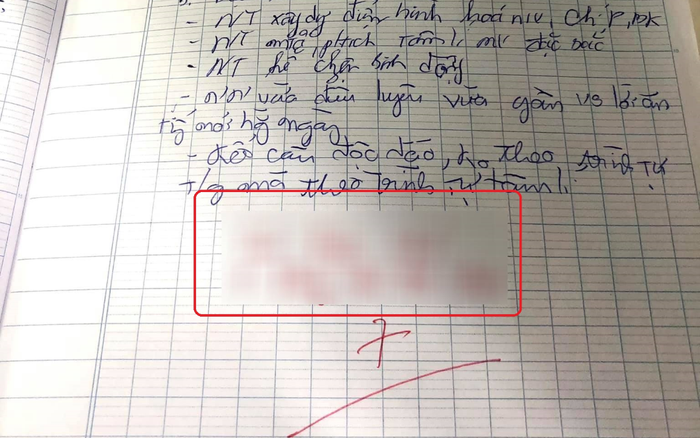 - NT xây dự điển hình hoá n/v, ch/P, pk
- NT mtả, ptích tâm lí n/v đặc sắc
- NT kể chện sinh động
- n/n vừa điêu luyện vừa gần vs lời ăn
tiếng nói hg ngày
- kết cấu độc đáo, ko theo trình tự
t/g mà theo trình tự tâm lí.
7